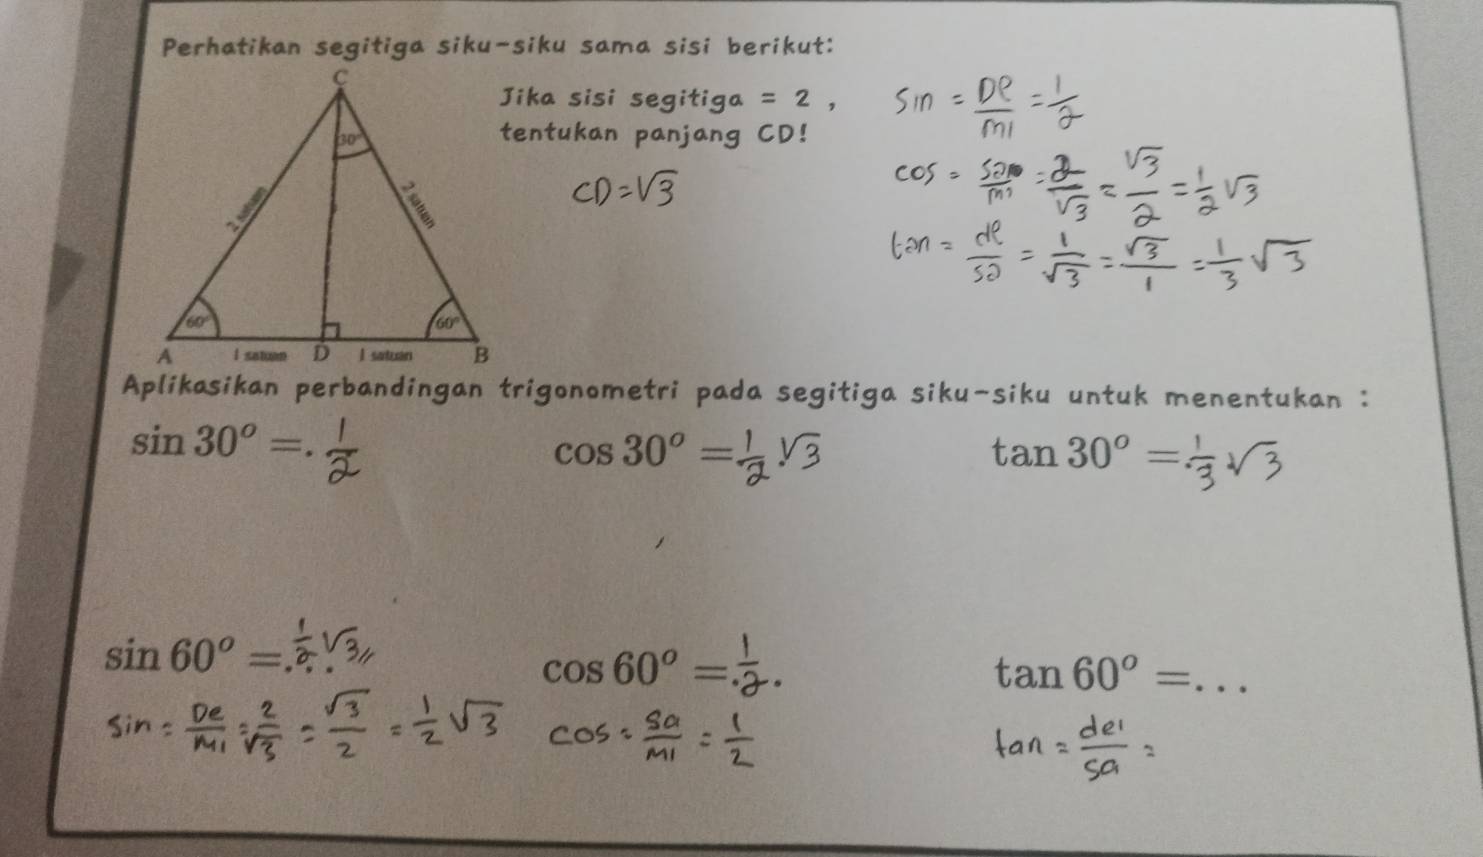 Perhatikan segitiga siku-siku sama sisi berikut:
C
30°
2 satuan
2 satuan
60°
60°
A 1 satuan D 1 satuan B
Jika sisi segitiga = 2 ,
tentukan panjang CD!
CD = √3
Sin = De/mi = 1/2
cos = sa/mi = 2/√3 = √3/2 = 1/2 √3
tan = de/sa = 1/√3 = √3/1 = 1/3 √3
Aplikasikan perbandingan trigonometri pada segitiga siku-siku untuk menentukan :
sin 30° =. 1/2 cos 30° = 1/2 √3 tan 30° = 1/3 √3
sin 60° = 1/2 √3 // cos 60° = 1/2 . tan 60° =. . .
Sin = De/Mi = 2/√3 = √3/2 = 1/2 √3 cos = sa/Mi = 1/2 tan = de/sa =